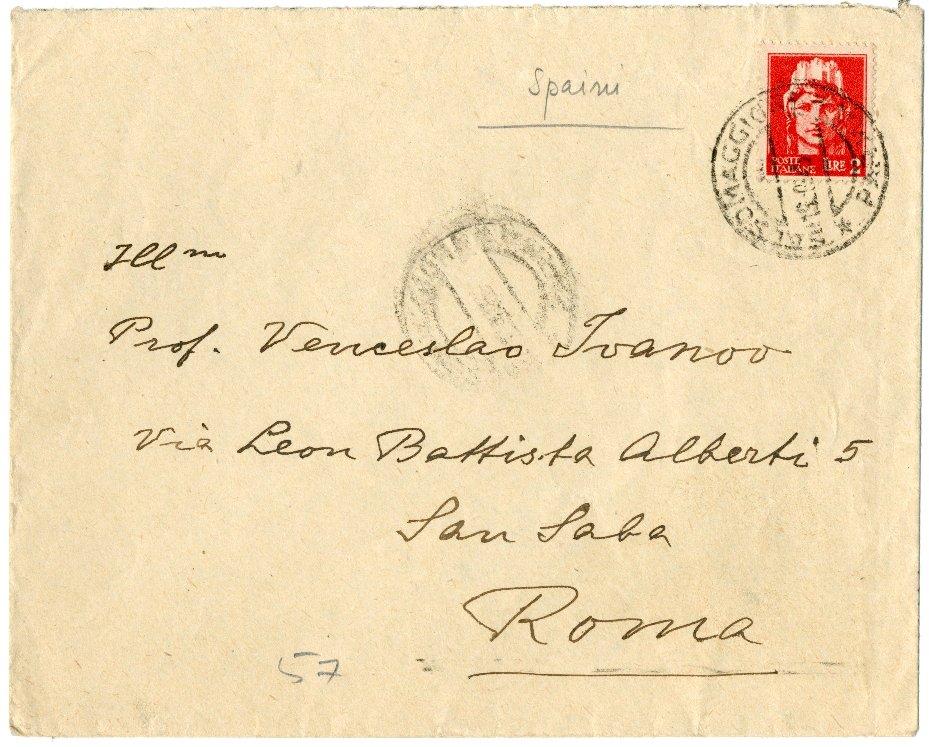 Spaini
POSTE
ITALIANE LIRE 2
Ill mo
Prof. Venceslao Ivanov
Via Leon Battista Alberti 5
San Saba
Roma
57